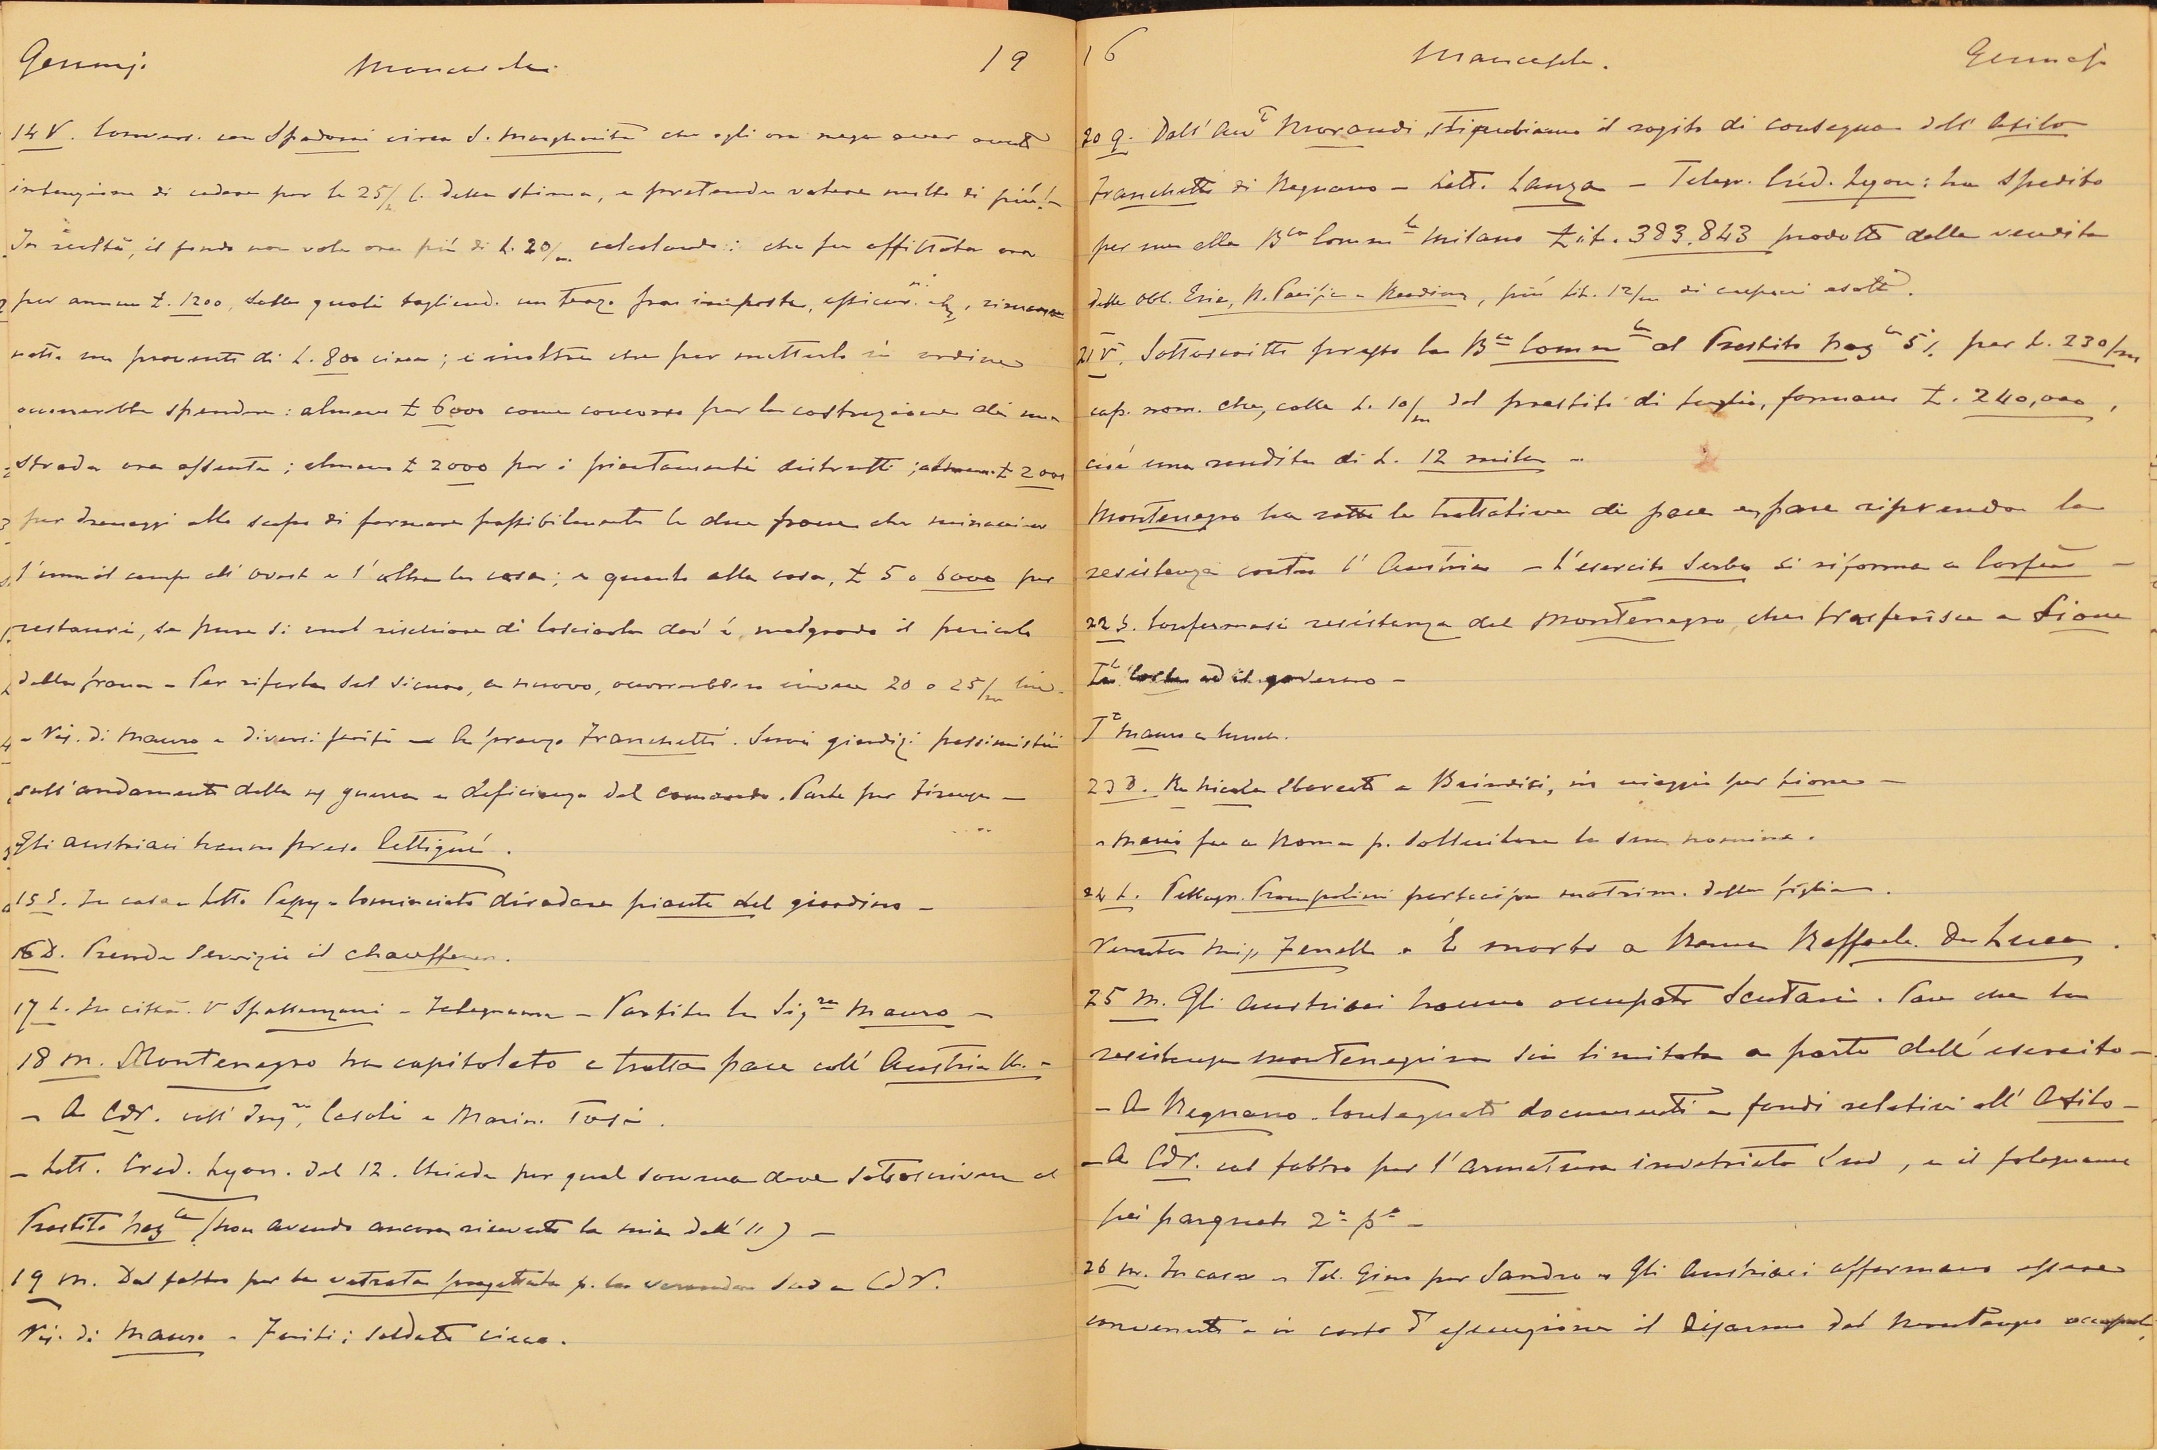 Gennaj. Mancasale 19
14 V. Convers. con Spadoni circa S. Margherita che egli ora nega aver avuto
intenzione di cedere per le 25/m L. della stima, e pretende valere molto di più! -
In realtà, il fondo non vale ora più di L. 20/m calcolando: che fu affittata ora
per annue L. 1200, dalle quali togliend. un terzo fra imposte, assicur.ni etc, rimane
netto un provento di L. 800 circa; e inoltre che per metterlo in ordine
occorrerebbe spendere: almeno L 6000 come concorso per la costruzione di una
strada ora assente; almeno L 2000 per i piantamenti distrutti; almeno L 2000
per drenaggi allo scopo di fermare possibilmente le due frane che minacciano
l'una il campo all'ovest e l'altra la casa; e quanto alla casa, L 5 o 6000 per
restauri, se pure si vuol rischiare di lasciarla dov'è, malgrado il pericolo
della frana - Per rifarla sul sicuro, a nuovo, occorrerebbero invece 20 o 25/m lire.
- Vis. di Mauro e diversi feriti - A pranzo Franchetti. Suoi giudizi pessimisti
sull'andamento della ns guerra e deficienza del comando. Parte per Firenze -
Gli austriaci hanno preso Cettigné.
15 S. In casa - Lett. Pepy - Cominciato diradare piante del giardino -
16 D. Prende servizio il chauffeur.
17 L. In città. V Spallanzani - Telegramma - Partita la Sig.ra Mauro -
18 M. Montenegro ha capitolato e tratta pace coll'Austria Un. -
- A CdV. coll'Ing.re Casoli e Marin. Tosi.
- Lett. Cred. Lyon. del 12. Chiede per qual somma deve sottoscrivere al
Prestito Naz.le (non avendo ancora ricevuto la mia dell'11) -
19 M. Dal fabbro per la vetrata progettata p. la veranda Sud a CdV.
Vis. di Mauro - Feriti: soldato cieco.
16 Mancasale. Gennajo
20 G. Dall'Avv.t Morandi, stipuliamo il rogito di consegna dell'Asilo
Franchetti di Regnano - Lett. Lanza - Telegr. Créd. Lyon: ha spedito
per me alla B.ca Comm.le Milano Lit. 383.843 prodotto della vendita
delle Obl. Erie, N. Pacific e Reading, più Lit. 12/m di cuponi esatti.
21 V. Sottoscritto presso la B.ca Comm.le al Prestito Naz.le 5% per L. 230/m
cap. nom. che, colle L. 10/m del prestito di luglio, formano L. 240,000,
cioè una rendita di L. 12 mila -
Montenegro ha rotto le trattative di pace e pare riprenda la
resistenza contro l'Austria - L'esercito Serbo si riforma a Corfù -
22 S. Confermasi resistenza del Montenegro, che trasferisce a Lione
la Corte ed il governo -
T.t Mauro a lunch.
23 D. Re Nicola sbarcato a Brindisi, in viaggio per Lione -
- Mario fu a Roma p. sollecitare la sua nomina.
24 L. Pellegr. Prampolini partecipa matrim. della figlia.
Venuta Miss Fenell - È morto a Roma Raffaele De Luca.
25 M. Gli Austriaci hanno occupato Scutari. Pare che la
resistenza montenegrina sia limitata a parte dell'esercito -
- A Regnano. Consegnati documenti e fondi relativi all'Asilo -
- A CdV. col fabbro per l'armatura invetriata Sud, e il falegname
pei parquets 2.° p.°
26 M. In casa - Tel. Gino per Sandro - Gli Austriaci affermano essere
convenuto e in corso d'esecuzione il disarmo del Montenegro occupato,